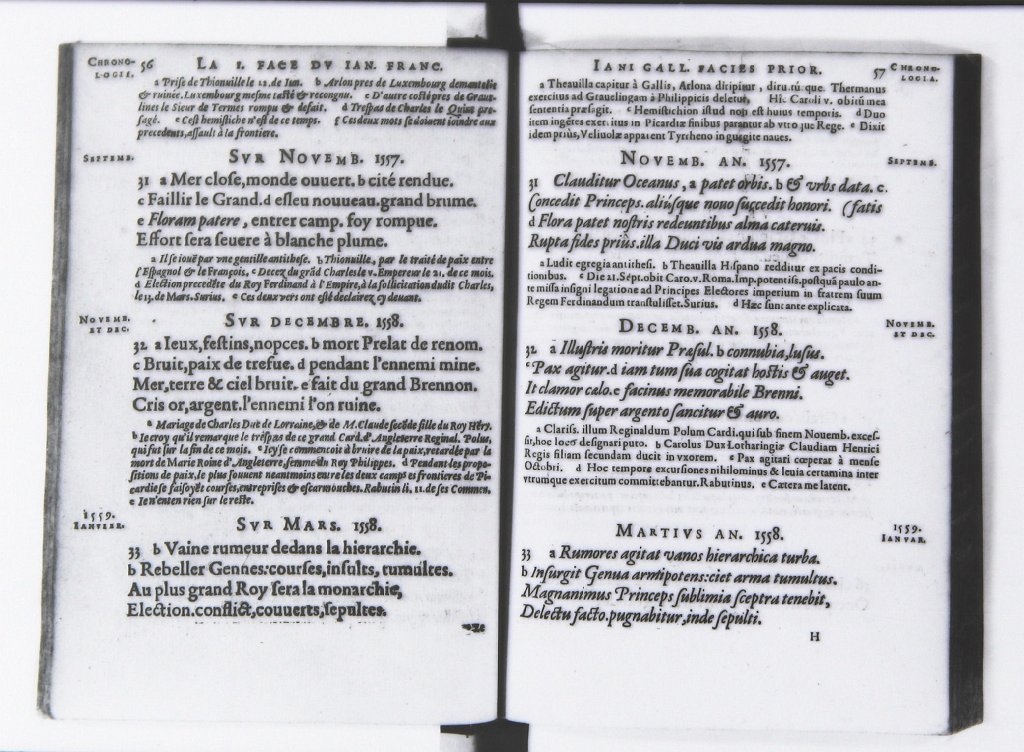 CHRONO-
LOGIE.
56
LA I. FACE DV IAN. FRANC.
a Prise de Thionuille le 22. de Iun. b Arlon pres de Luxembourg demantelée
& ruinée. Luxembourg mesme tasté & recongnu. c D'autre costé pres de Graue-
lines le Sieur de Termes rompu & defait. d Trespas de Charles le Quint pre-
sagé. e Cest hemistiche n'est de ce temps. f Ces deux mots se doiuent ioindre aux
precedents, assault à la frontiere.
SEPTEMB.
SVR NOVEMB. 1557.
31 a Mer close, monde ouuert. b cité rendue.
c Faillir le Grand. d esleu nouueau. grand brume.
e Floram patere, entrer camp. foy rompue.
Effort sera seuere à blanche plume.
a Il se ioué par vne gentille antithese. b Thionuille, par le traité de paix entre
l'Espagnol & le François. c Decez du grãd Charles le v. Empereur le 21. de ce mois.
d Election precedẽte du Roy Ferdinand à l'Empire, à la sollicitation dudit Charles,
le 13. de Mars. Surius. e Ces deux vers ont esté declairez cy deuant.
NOVEMB.
ET DEC.
SVR DECEMBRE. 1558.
32 a Ieux, festins, nopces. b mort Prelat de renom.
c Bruit, paix de trefue. d pendant l'ennemi mine.
Mer, terre & ciel bruit. e fait du grand Brennon.
Cris or, argent. l'ennemi l'on ruine.
a Mariage de Charles Duc de Lorraine, & de M. Claude secõde fille du Roy Hẽry.
b Ie croy qu'il remarque le trespas de ce grand Card. d'Angleterre Reginal. Polus,
qui fus sur la fin de ce mois. c Icy se commencoit à bruire de la paix, retardée par la
mort de Marie Roine d'Angleterre, femme du Roy Philippes. d Pendant les propo-
sitions de paix, le plus souuent neantmoins entre les deux camps es frontieres de Pi-
cardie se faisoyẽt courses, entreprises & escarmouches. Rabutin li. 11. de ses Commen.
e Ie n'enten rien sur le reste.
1559.
IANVIER.
SVR MARS. 1558.
33 b Vaine rumeur dedans la hierarchie.
b Rebeller Gennes: courses, insults, tumultes.
Au plus grand Roy sera la monarchie,
Election. conflict, couuerts, sepultes.
IANI GALL. FACIES PRIOR.
57
CHRONO-
LOGIA.
a Theauilla capitur à Gallis, Arlona diripitur, dirutúque. Thermanus
exercitus ad Grauelingam à Philippicis deletur, Hi. Caroli v. obitũ mea
sententia præsagit. c Hemistichion istud non est huius temporis. d Duo
item ingẽtes exercitus in Picardiæ finibus parantur ab vtroque Rege. e Dixit
idem priùs, Veliuolæ apparent Tyrrheno in gurgite naues.
SEPTEMB.
NOVEMB. AN. 1557.
31 Clauditur Oceanus, a patet orbis. b & vrbs data. c.
Concedit Princeps. aliúsque nouo succedit honori. (fatis
d Flora patet nostris redeuntibus alma cateruis.
Rupta fides priùs. illa Duci vis ardua magno.
a Ludit egregia antithesi. b Theauilla Hispano redditur ex pacis condi-
tionibus. c Die 21. Sept. obit Caro. v. Roma. Imp. potentiss. postquã paulo an-
te missa insigni legatione ad Principes Electores imperium in fratrem suum
Regem Ferdinandum transtulisset. Surius. d Hæc sunt ante explicata.
NOVEMB.
ET DEC.
DECEMB. AN. 1558.
32 a Illustris moritur Præsul. b connubia, lusus.
c Pax agitur. d iam tum sua cogitat hostis & auget.
It clamor cælo. e facinus memorabile Brenni.
Edictum super argento sancitur & auro.
a Clariss. illum Reginaldum Polum Cardi. qui sub finem Nouemb. exces-
sit, hoc loco designari puto. b Carolus Dux Lotharingiæ Claudiam Henrici
Regis filiam secundam ducit in vxorem. c Pax agitari cœperat à mense
Octobri. d Hoc tempore excursiones nihilominus & leuia certamina inter
vtrumque exercitum committebantur. Rabutinus. e Cætera me latent.
1559.
IANVAR.
MARTIVS AN. 1558.
33 a Rumores agitat vanos hierarchica turba.
b Insurgit Genua armipotens: ciet arma tumultus.
Magnanimus Princeps sublimia sceptra tenebit,
Delectu facto. pugnabitur, inde sepulti.
H